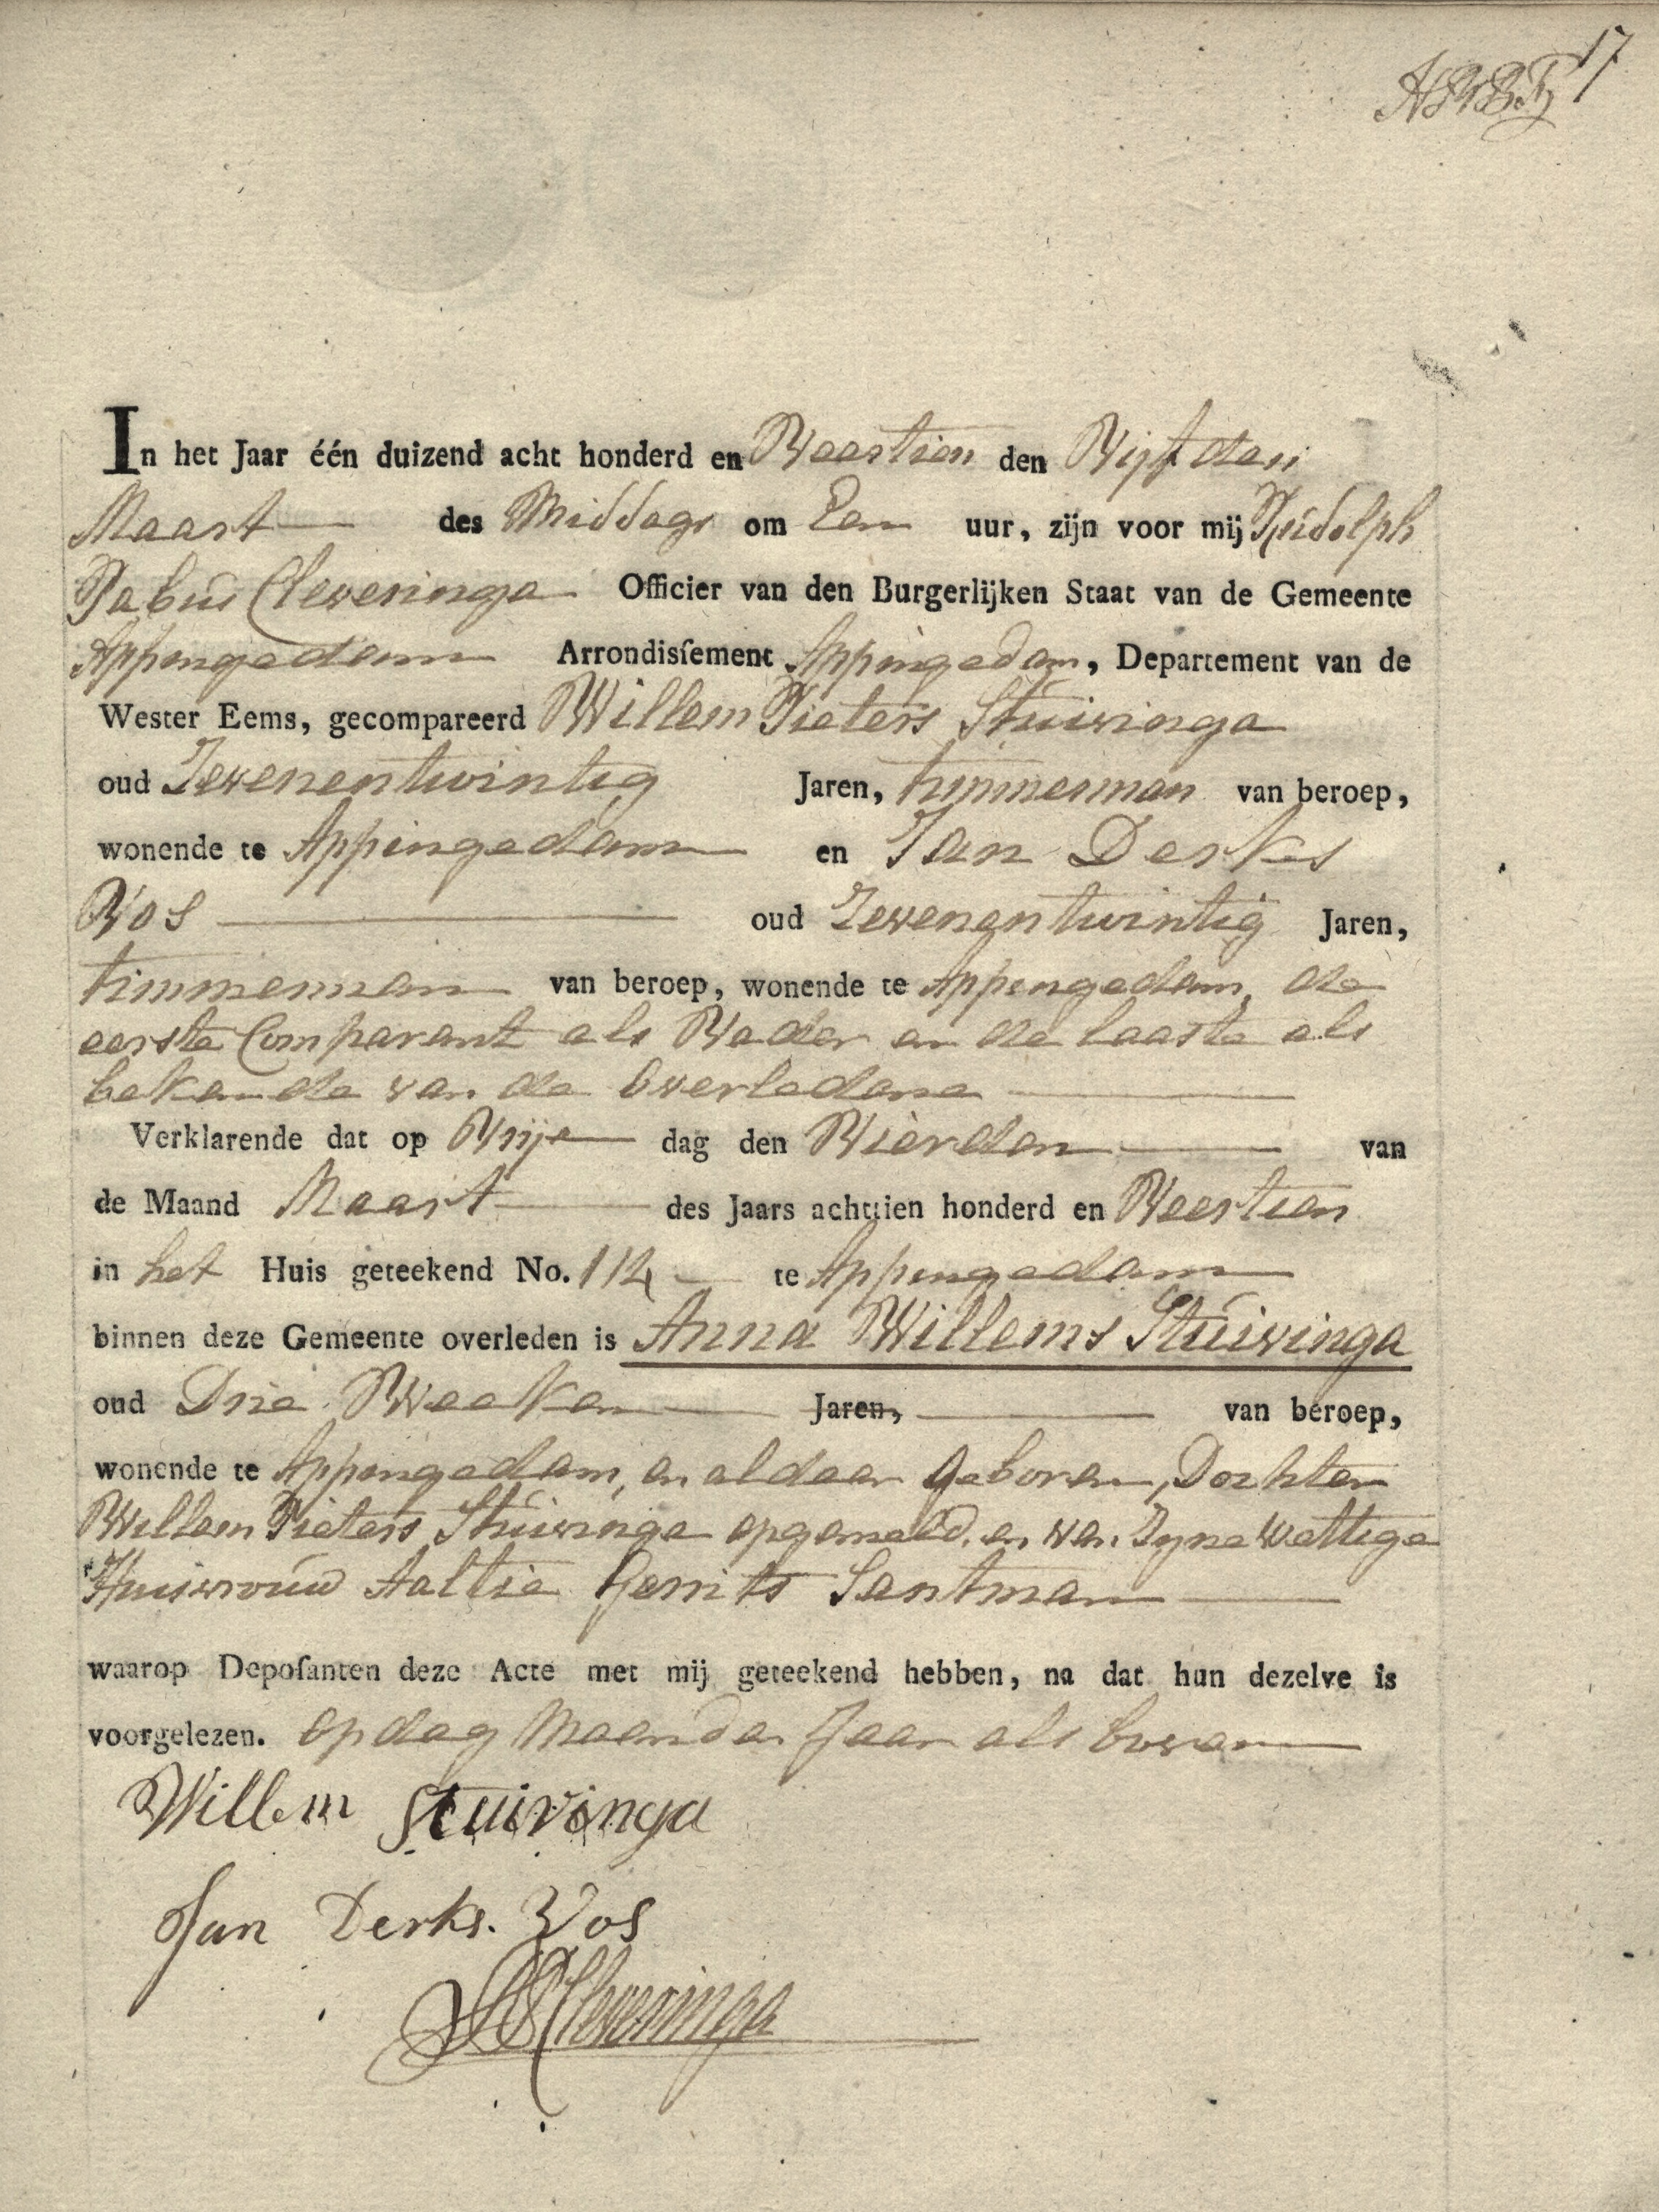 17
In het Jaar één duizend acht honderd en Veertien den Vijfden
Maart des Middags om Een uur, zijn voor mij Rudolph
Pabus Cleveringa Officier van den Burgerlijken Staat van de Gemeente
Appingedam Arrondisſement Appingedam, Departement van de
Wester Eems, gecompareerd Willem Pieters Stuivinga
oud Zevenentwintig Jaren, timmerman van beroep,
wonende te Appingedam en Jan Derks
Vos oud Zevenentwintig Jaren,
timmerman van beroep, wonende te Appingedam, de
eerste Comparant als Vader en de laaste als
bekende van de Overledene
Verklarende dat op Vrije dag den Vierden van
de Maand Maart des Jaars achttien honderd en Veertien
in het Huis geteekend No. 114 te Appingedam
binnen deze Gemeente overleden is Anna Willems Stuivinga
oud Drie Weeken Jaren, van beroep,
wonende te Appingedam, en aldaar geboren, Dochter
Willem Pieters Stuivinga opgemeld, en van Zyne Wettige
Huisvrouw Aaltie Gerrits Santman
waarop Depoſanten deze Acte met mij geteekend hebben, na dat hun dezelve is
voorgelezen. op dag Maand en Jaar als boven
Willem Stuivinga
Jan Derks. Vos
RPCleveringa